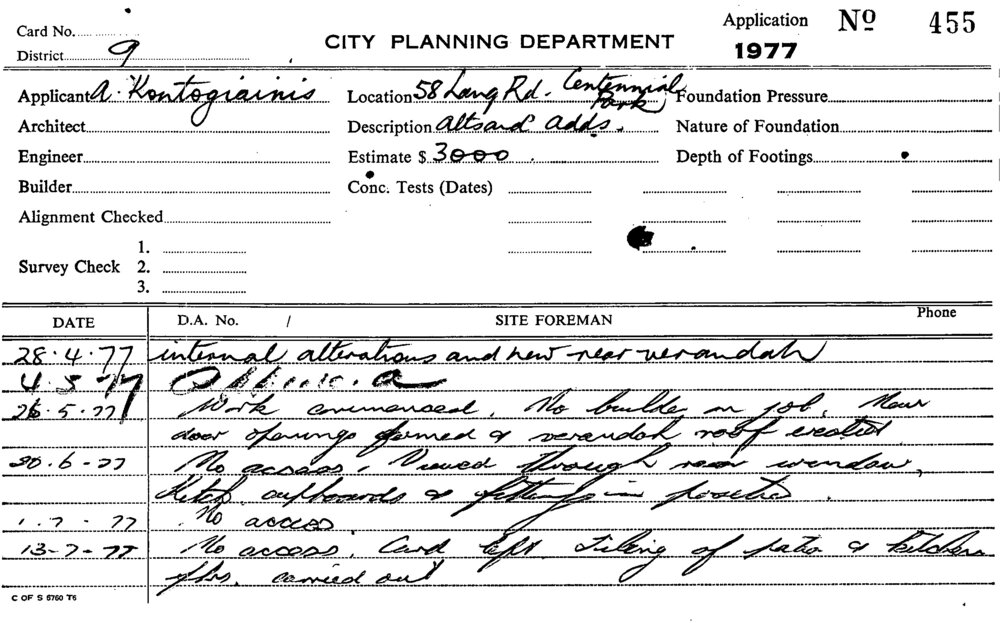 Card No.
District 9
CITY PLANNING DEPARTMENT
Application No 455
1977
Applicant A. Kontogiainis
Location 58 Lang Rd. Centennial Park
Foundation Pressure
Architect
Description Alts and adds.
Nature of Foundation
Engineer
Estimate $ 3000
Depth of Footings
Builder
Conc. Tests (Dates)
Alignment Checked
1.
Survey Check 2.
3.
DATE D.A. No. / SITE FOREMAN Phone
28.4.77 internal alterations and new rear verandah
4.5.77
26.5.77 Work commenced. No builder on job. New
door openings formed & verandah roof erected
30.6-77 No access. Viewed through rear window,
Kitch. cupboards & fittings in position.
1.7-77 No access.
13-7-77 No access. Card left Tiling of patio & kitchen
flrs. carried out
C OF S 6760 T6